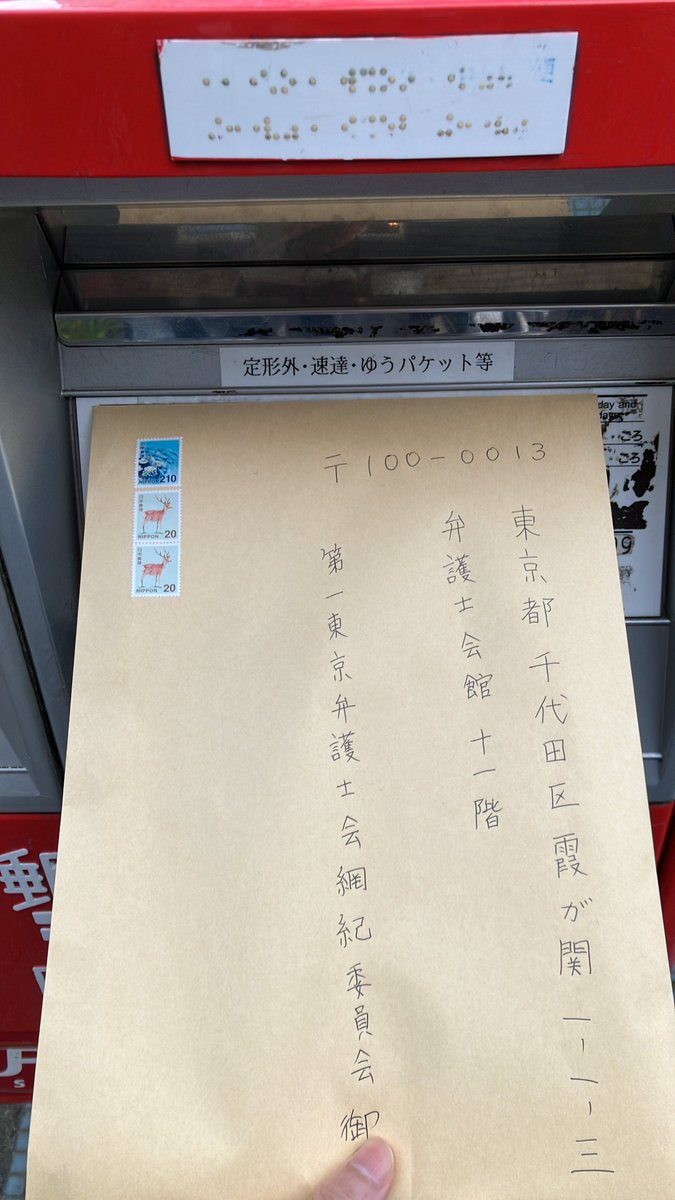 定形外・速達・ゆうパケット等
day and
ころ
ころ
〒100-0013
東京都千代田区霞が関一-一-三
弁護士会館 十一階
第一東京弁護士会網紀委員会 御
NIPPON 210
NIPPON 20
NIPPON 20
郵